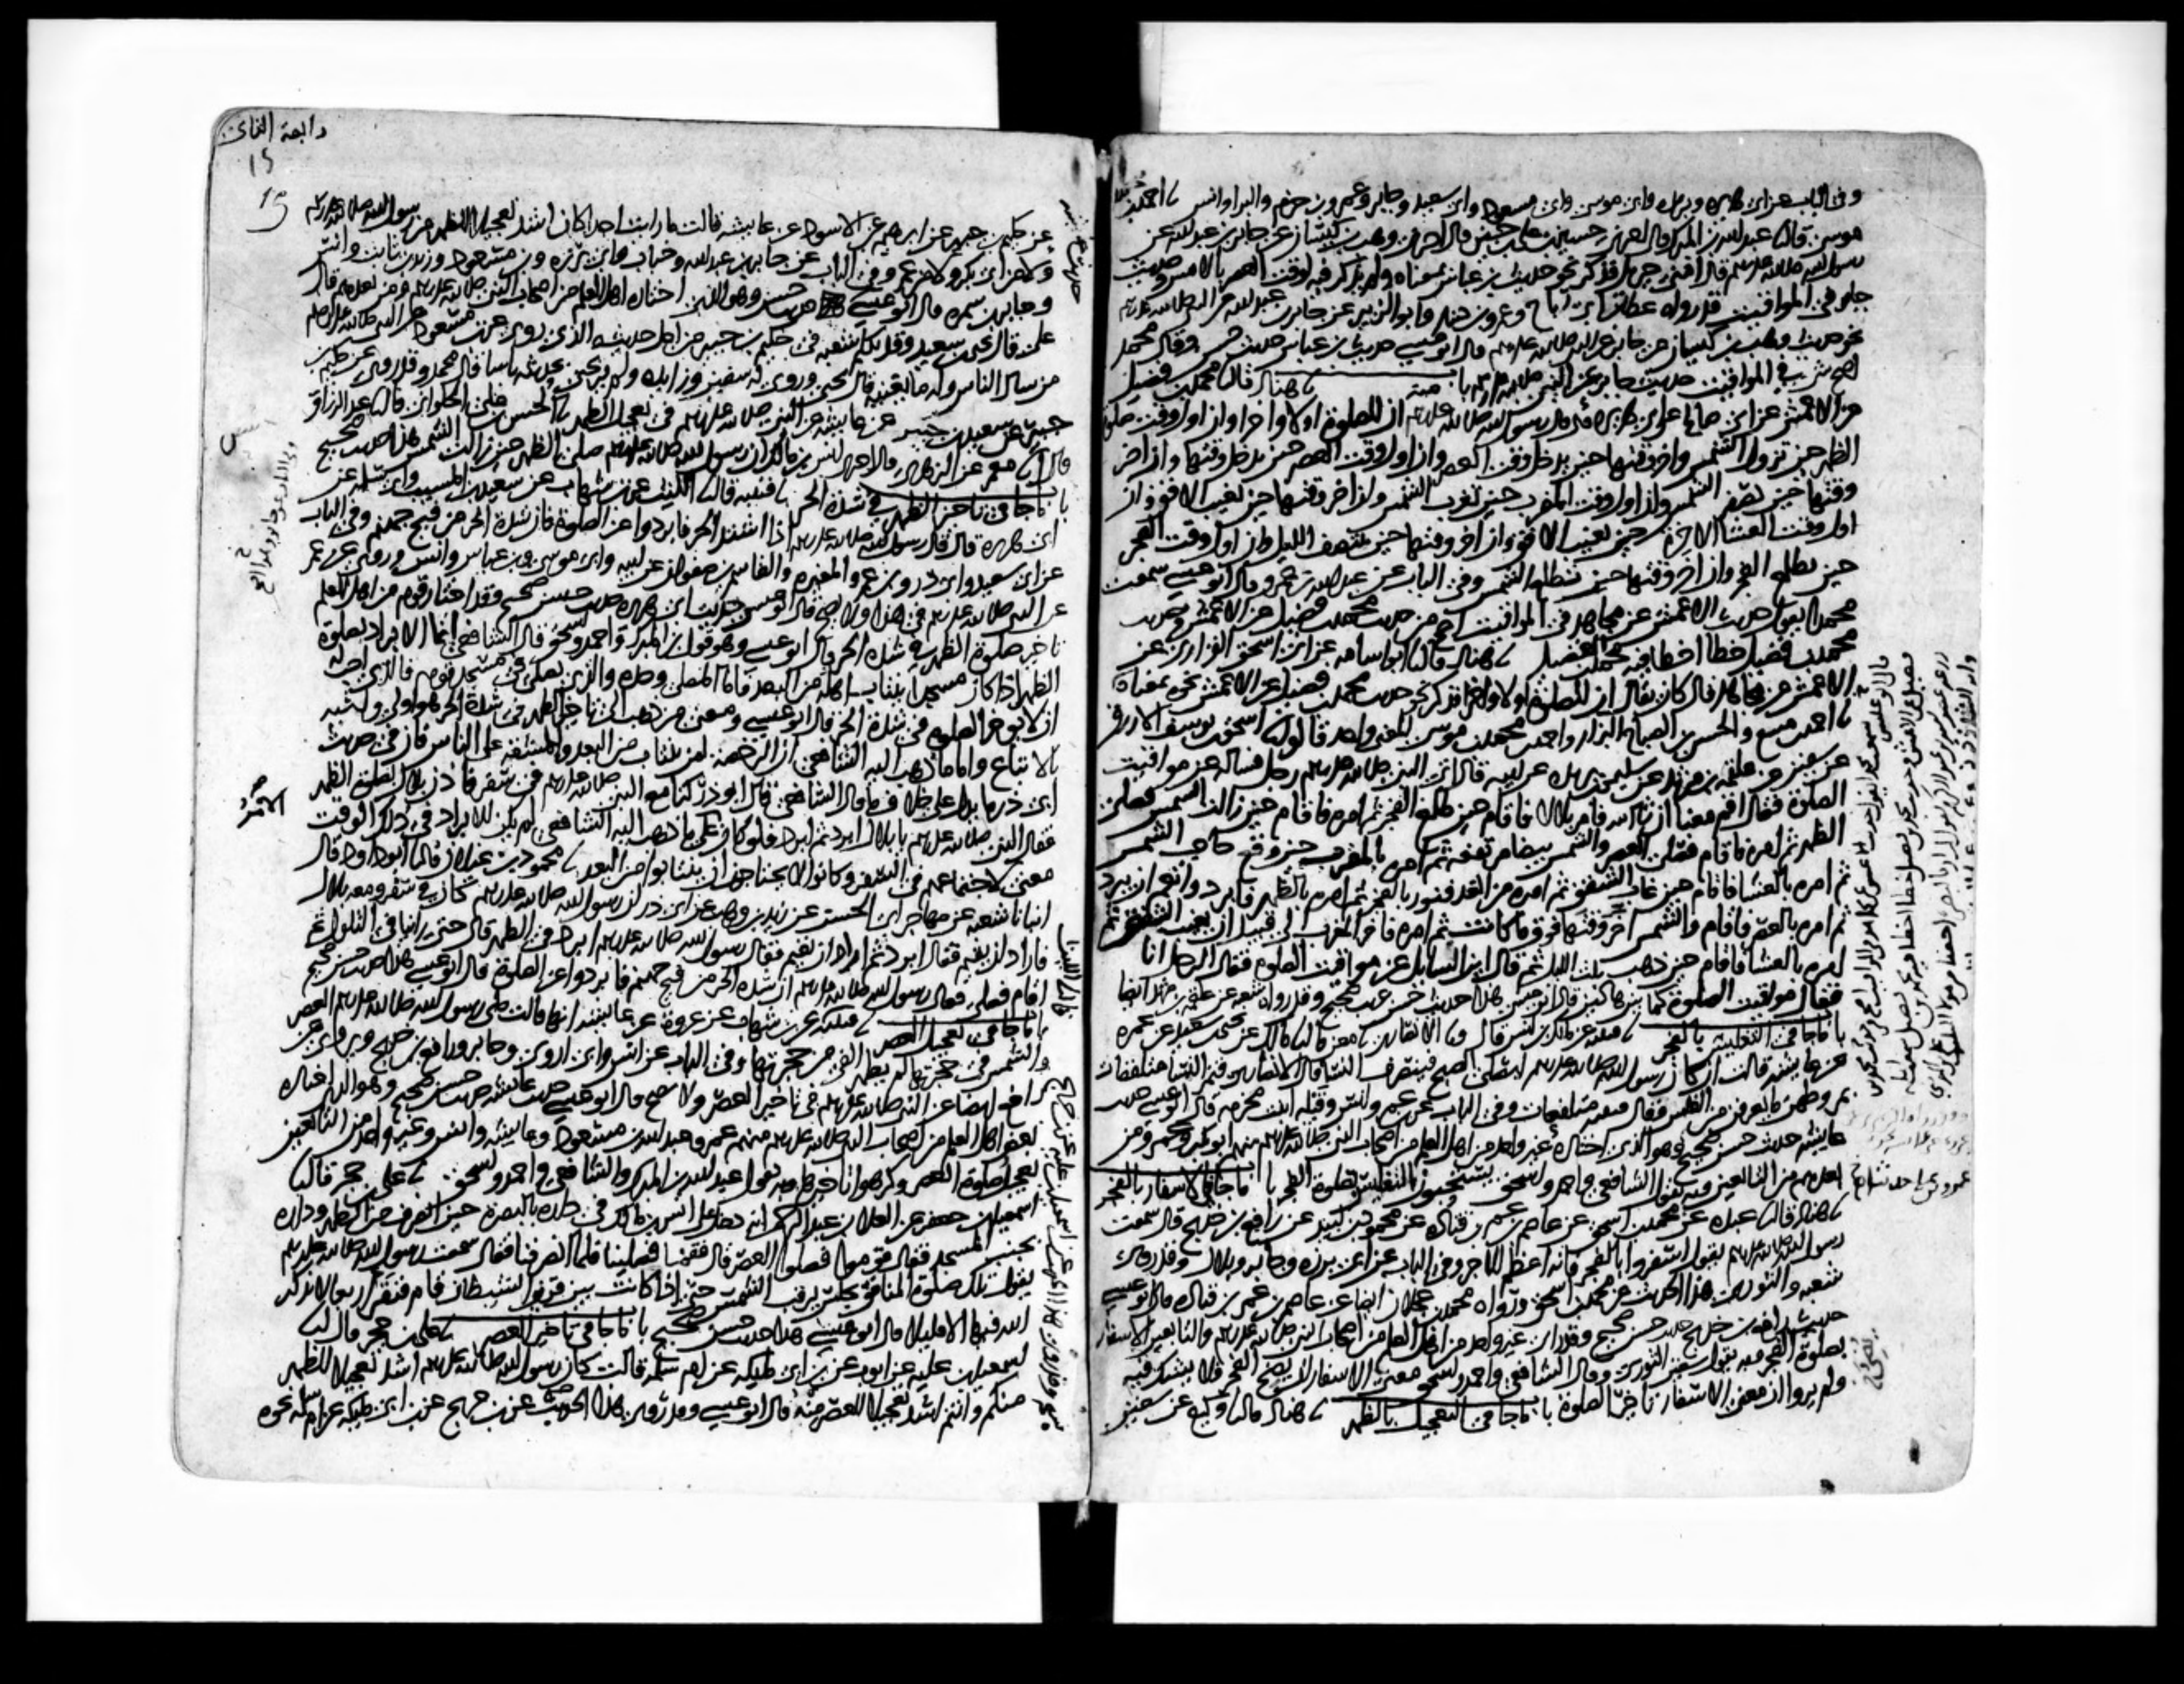 وفي الباب عن ابي هريره وبريده وابي موسى وابي مسعود وابي سعيد وجابر وعمرو بن حزم والبرا وانس نا احمد بن محمد بن
موسى قال نا عبد الله بن المبرك قال اخبرني حسين بن علي بن حسين قال اخبرني وهب بن كيسان عن جابر بن عبد الله عن
رسول الله صلى الله عليه وسلم قال امني جبريل فذكر نحو حديث بن عباس بمعناه ولم يذكر فيه لوقت العصر بالامس وحديث
جابر في المواقيت قد رواه عطا بن ابي رباح وعمرو بن دينار وابو الزبير عن جابر بن عبد الله عن النبي صلى الله عليه وسلم
نحو حديث وهب بن كيسان عن جابر عن النبي صلى الله عليه وسلم قال ابو عيسى حديث بن عباس حديث حسن وقال محمد
اصح شي في المواقيت حديث جابر عن النبي صلى الله عليه وسلم باب منه نا هناد قال نا محمد بن فضيل
عن الاعمش عن ابي صالح عن ابي هريره قال قال رسول الله صلى الله عليه وسلم ان للصلوة اولا واخرا وان اول وقت صلوة
الظهر حين تزول الشمس واخر وقتها حين يدخل وقت العصر وان اول وقت العصر حين يدخل وقتها وان اخر
وقتها حين تصفر الشمس وان اول وقت المغرب حين تغرب الشمس وان اخر وقتها حين يغيب الافق وان
اول وقت العشا الاخرة حين يغيب الافق وان اخر وقتها حين ينتصف الليل وان اول وقت الفجر
حين يطلع الفجر وان اخر وقتها حين تطلع الشمس وفي الباب عن عبد الله بن عمرو قال ابو عيسى سمعت
محمدا يقول حديث الاعمش عن مجاهد في المواقيت اصح من حديث محمد بن فضيل عن الاعمش وحديث
محمد بن فضيل خطا اخطا فيه محمد بن الفضيل نا هناد قال نا ابو اسامه عن ابي اسحق الفزاري عن
الاعمش عن مجاهد قال كان يقال ان للصلوة اولا واخرا فذكر نحو حديث محمد بن فضيل عن الاعمش نحوه بمعناه
نا احمد بن منيع والحسن بن الصباح البزار واحمد بن محمد بن موسى المعنى واحد قالوا نا اسحق بن يوسف الازرق
عن سفين عن علقمه بن مرثد عن سليمن بن بريده عن ابيه قال اتى النبي صلى الله عليه وسلم رجل فساله عن مواقيت
الصلوة فقال اقم معنا ان شا الله فامر بلالا فاقام حين طلع الفجر ثم امره فاقام حين زالت الشمس فصلى
الظهر ثم امره فاقام فصلى العصر والشمس بيضا مرتفعه ثم امره بالمغرب حين وقع حاجب الشمس
ثم امره بالعشا فاقام حين غاب الشفق ثم امره من الغد فنور بالفجر ثم امره بالظهر فابرد وانعم ان يبرد
ثم امره بالعصر فاقام والشمس اخر وقتها فوق ما كانت ثم امره فاخر المغرب الى قبيل ان يغيب الشفق ثم
امره بالعشا فاقام حين ذهب ثلث الليل ثم قال اين السايل عن مواقيت الصلوة فقال الرجل انا
فقال مواقيت الصلوة كما بين هاذين قال ابو عيسى هذا حديث حسن غريب صحيح وقد رواه شعبه عن علقمه بن مرثد ايضا
باب ما جا في التغليس بالفجر نا قتيبه عن ملك بن انس قال ونا الانصاري نا معن قال نا مالك عن يحيى بن سعيد عن عمره
عن عايشه قالت ان كان رسول الله صلى الله عليه وسلم ليصلي الصبح فينصرف النسا قال الانصاري فتمر النسا متلففات
بمروطهن ما يعرفن من الغلس وقال قتيبه متلفعات وفي الباب عن بن عمر وانس وقيله ابنت مخرمه قال ابو عيسى حديث
عايشه حديث حسن صحيح وهو الذي اختاره غير واحد من اهل العلم من اصحاب النبي صلى الله عليه وسلم منهم ابو بكر وعمر ومن
بعدهم من التابعين وبه يقول الشافعي واحمد واسحق يستحبون التغليس بصلوة الفجر باب ما جا في الاسفار بالفجر
نا هناد قال نا عبده عن محمد بن اسحق عن عاصم بن عمر بن قتاده عن محمود بن لبيد عن رافع بن خديج قال سمعت
رسول الله صلى الله عليه وسلم يقول اسفروا بالفجر فانه اعظم للاجر وفي الباب عن ابي برزه وجابر وبلال وقد روى
شعبه والثوري هذا الحديث عن محمد بن اسحق ورواه محمد بن عجلان ايضا عن عاصم بن عمر بن قتاده قال ابو عيسى
حديث رافع بن خديج حديث حسن صحيح وقد راى غير واحد من اهل العلم من اصحاب النبي صلى الله عليه وسلم والتابعين الاسفار
بصلوة الفجر وبه يقول سفين الثوري وقال الشافعي واحمد واسحق معنى الاسفار ان يضح الفجر فلا يشك فيه
ولم يروا ان معنى الاسفار تاخير الصلوة باب ما جا في التعجيل بالظهر نا هناد قال نا وكيع عن سفين
رابعة الثماني
عن حكيم بن جبير عن ابرهيم عن الاسود عن عايشه قالت ما رايت احدا كان اشد تعجيلا للظهر من رسول الله صلى الله عليه وسلم
ولا من ابي بكر ولا من عمر وفي الباب عن جابر بن عبد الله وخباب وابي برزه وبن مسعود وزيد بن ثابت وانس
وجابر بن سمره قال ابو عيسى حديث حسن وهو الذي اختاره اهل العلم من اصحاب النبي صلى الله عليه وسلم ومن بعدهم قال
علي قال يحيى بن سعيد وقد تكلم شعبه في حكيم بن جبير من اجل حديثه الذي روى عن بن مسعود عن النبي صلى الله عليه وسلم
من سال الناس وله ما يغنيه قال يحيى وروى له سفين وزايده ولم ير يحيى بحديثه باسا قال محمد وقد روي عن حكيم بن
جبير عن سعيد بن جبير عن عايشه عن النبي صلى الله عليه وسلم في تعجيل الظهر نا الحسن بن علي الحلواني قال نا عبد الرزاق
قال انا معمر عن الزهري قال اخبرني انس بن مالك ان رسول الله صلى الله عليه وسلم صلى الظهر حين زالت الشمس هذا حديث صحيح
باب ما جا في تاخير الظهر في شدة الحر نا قتيبه قال نا الليث عن بن شهاب عن سعيد بن المسيب وابي سلمه عن
ابي هريره قال قال رسول الله صلى الله عليه وسلم اذا اشتد الحر فابردوا عن الصلوة فان شدة الحر من فيح جهنم وفي الباب
عن ابي سعيد وابي ذر وبن عمر والمغيره والقاسم بن صفوان عن ابيه وابي موسى وبن عباس وانس وروي عن عمر
عن النبي صلى الله عليه وسلم في هذا ولا يصح قال ابو عيسى حديث ابي هريره حديث حسن صحيح وقد اختار قوم من اهل العلم
تاخير صلوة الظهر في شدة الحر قال ابو عيسى وهو قول بن المبرك واحمد واسحق قال الشافعي انما الابراد بصلوة
الظهر اذا كان مسجدا ينتاب اهله من البعد فاما المصلي وحده والذي يصلي في مسجد قومه فالذي احب له
ان لا يوخر الصلوة في شدة الحر قال ابو عيسى ومعنى من ذهب الى تاخير الظهر في شدة الحر هو اولى واشبه
بالاتباع واما ما ذهب اليه الشافعي ان الرخصة لمن ينتاب من البعد والمشقه على الناس فان في حديث
ابي ذر ما يدل على خلاف ما قال الشافعي قال ابو ذر كنا مع النبي صلى الله عليه وسلم في سفر فاذن بلال لصلوة الظهر
فقال النبي صلى الله عليه وسلم يا بلال ابرد ثم ابرد فلو كان على ما ذهب اليه الشافعي لم يكن للابراد في ذلك الوقت
معنى لاجتماعهم في السفر وكانوا لا يحتاجون ان ينتابوا من البعد نا محمود بن غيلان قال نا ابو داود قال
انبانا شعبه عن مهاجر ابي الحسن عن زيد بن وهب عن ابي ذر ان رسول الله صلى الله عليه وسلم كان في سفر ومعه بلال
فاراد ان يقيم فقال ابرد ثم اراد ان يقيم فقال رسول الله صلى الله عليه وسلم ابرد في الظهر قال حتى راينا في التلول ثم
اقام فصلى فقال رسول الله صلى الله عليه وسلم ان شدة الحر من فيح جهنم فابردوا عن الصلوة قال ابو عيسى هذا حديث حسن صحيح
باب ما جا في تعجيل العصر نا قتيبه عن بن شهاب عن عروة عن عايشه انها قالت صلى رسول الله صلى الله عليه وسلم العصر
والشمس في حجرتها لم يظهر الفي من حجرتها وفي الباب عن انس وابي اروى وجابر ورافع بن خديج ويروى عن
رافع ايضا عن النبي صلى الله عليه وسلم في تاخير العصر ولا يصح قال ابو عيسى حديث عايشه حديث حسن صحيح وهو الذي اختاره
بعض اهل العلم من اصحاب النبي صلى الله عليه وسلم منهم عمر وعبد الله بن مسعود وعايشه وانس وغير واحد من التابعين
تعجيل صلوة العصر وكرهوا تاخيرها وبه يقول عبد الله بن المبرك والشافعي واحمد واسحق نا علي بن حجر قال نا
اسمعيل بن جعفر عن العلا بن عبد الرحمن انه دخل على انس بن مالك في داره بالبصرة حين انصرف من الظهر وداره
بجنب المسجد فقال قوموا فصلوا العصر قال فقمنا فصلينا فلما انصرفنا قال سمعت رسول الله صلى الله عليه وسلم
يقول تلك صلوة المنافق يجلس يرقب الشمس حتى اذا كانت بين قرني الشيطان قام فنقر اربعا لا يذكر
الله فيها الا قليلا قال ابو عيسى هذا حديث حسن صحيح باب ما جا في تاخير العصر نا علي بن حجر قال نا
اسمعيل بن عليه عن ايوب عن بن ابي مليكه عن ام سلمه قالت كان رسول الله صلى الله عليه وسلم اشد تعجيلا للظهر
منكم وانتم اشد تعجيلا للعصر منه قال ابو عيسى وقد روي هذا الحديث عن بن جريج عن بن ابي مليكه عن ام سلمه نحوه